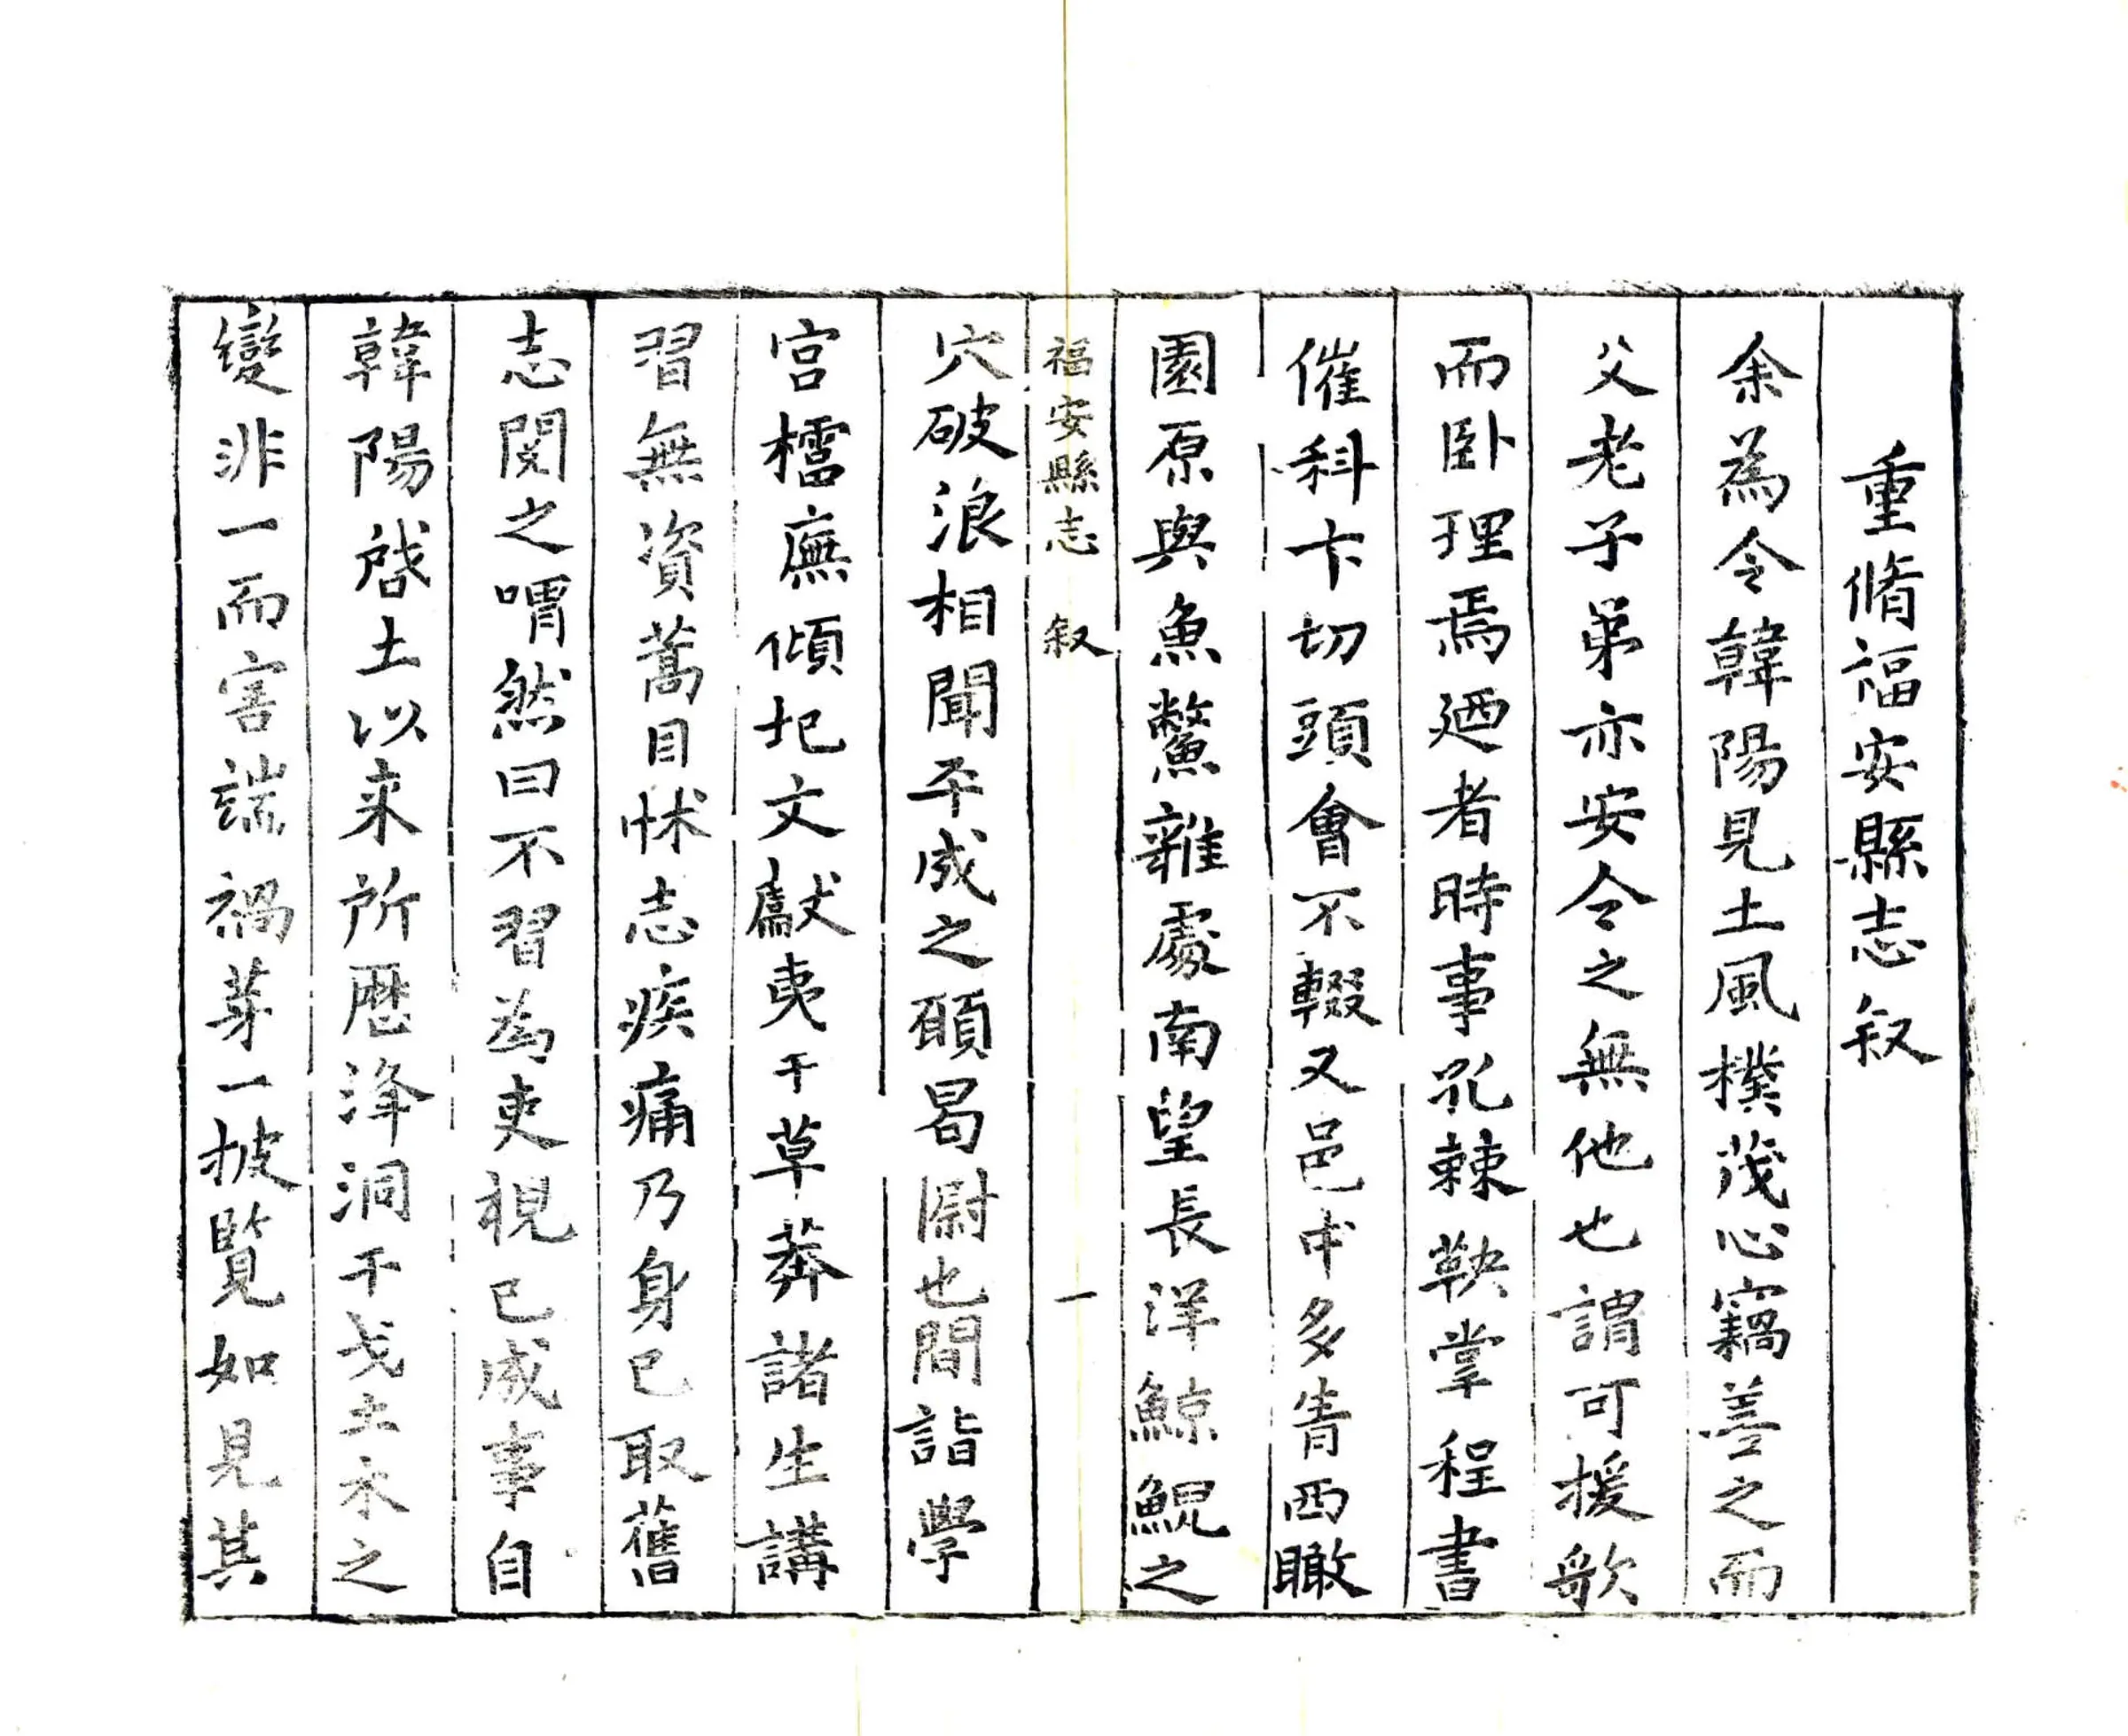 重脩福安縣志叙
余為令韓陽見土風樸茂心竊善之而
父老子弟亦安令之無他也謂可援歌
而卧理焉廼者時事孔棘鞅掌程書
催科卞切頭會不輟又邑中多眚西瞰
園原與魚鱉雜處南望長洋鯨鯢之
福安縣志 叙 一
穴破浪相聞平成之願曷尉也間詣學
宮櫺廡傾圮文獻夷于草莽諸生講
習無資蒿目怵志疾痛乃身已取舊
志閱之喟然曰不習為吏視已成事自
韓陽啓土以来所歷洚洞干戈土木之
變非一而害端禍芽一披覽如見其